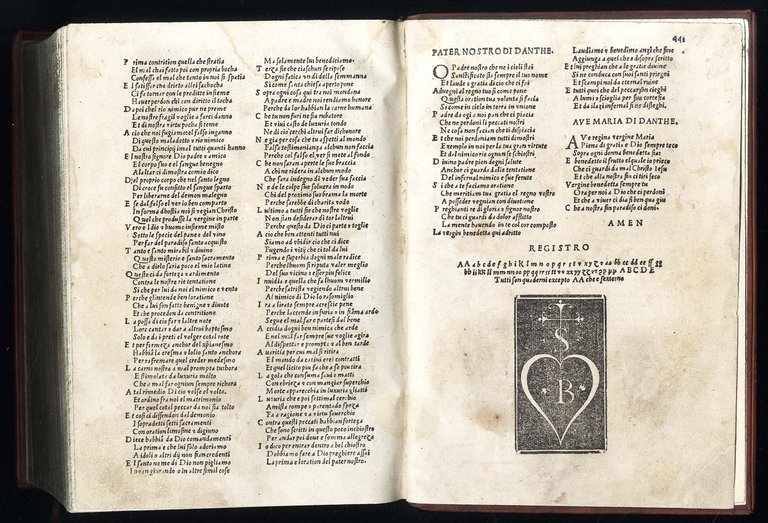 P rima contrition quella che stratia
El mal chai fatto poi con propria bocha
Confessi el mal che tanto in noi si spatia
E l satisfar che drieto alle i sachocha
Ci fa tornar con le preditte insieme
Haver perdon chi con diritto il tocha
D a poi chel rio nimico pur ne preme
Le nostre fragil voglie a farci danno
Et di nostra virtu pocho si teme
A cio che noi fugiamo el falso inganno
Di questo maladetto e rio nimico
Da cui principij mal tutti quanti hanno
E l nostro signore Dio padre e amico
El corpo suo e el sangue benegno
Alaltar ci dimostra como dico
D el proprio corpo che nel sancto legno
Di croce fu confitto el sangue sparto
Per liberarne del demon malegno
E se dal falso el ver io ben comparto
In forma dhostia noi si vegian Christo
Quel che produsse la vergine in parte
V ero e Idio e huomo insieme misto
Sotto le spetie del pane e del vino
Per far del paradiso santo acquisto
T anto e santo mirabil e divino
Questo misterio e santo sacramento
Che a dirlo saria poco el mio latino
Q uesto ci da forteza e ardimento
Contra le nostre rie tentatione
Si che per lui da noi el nimico e vento
P erche glintende ben loratione
Che a lui son fatte benigne e divote
Et che procedon da contritione
L a possa di cio far e laltre note
Lore cantar e dar a altrui baptesmo
Solo e di i preti el volger cotal rote
E t per fermeza anchor del xpianesmo
Habbiam la cresma e lolio santo anchora
Per rafermare quel creder medesmo
L a carne nostra a mal prompta tuthora
E stimolata da luxuria molto
Che a mal far ognium sempre richora
A tal rimedio Dio volse el volto.
Et ordino fra noi el matrimonio
Per quel cotal peccar da noi sia tolto
E t cosi ci diffendon dal demonio
I sopradetti setti sacramenti
Con oration limosine e digiuno
D iece habbian da Dio comandamenti
La prima e che lui solo adoriamo
A idoli o altri dij non fian credenti
E l santo nome di Dio non pigliamo
Invan giurando o in altre simil cose
Ma solamente lui benedictiamo.
T erzo sie che ciaschun se ripose
Dogni fatica un di della semmanna
Si come santa chiesa aperto pone
S opra ogni cosa qui tra noi mondana
A padre e madre noi rendiamo honore
Perche da lor habbian la carne humana
C he tu non furi ne sia rubatore
Et vivi casto de luxuria tondo
Ne di cio cerchi altrui far dishonore
N e gia per cosa che tu aspetti al mondo
Falsa testimonianza alchun non faccia
Perche col falso el ver si mete al fondo
C he non saran aperte le sue braccia
A chi ne ridera in alchun modo
Che sara indegno di veder sua faccia
N e de le colpe sue solvera in nodo
Chi del proximo suo brama la morte
Perche sarebbe di charita vodo
L ultimo a tutti sie che nostre voglie
Non sian desiderar di tor laltrui
Perche questo da Dio ci parte e toglie
A cio che ben attenti tutti nui
Siamo ad ubidir cio che ci dice
Fugendo i vitij che ci tol da lui
P rima e superbia dogni male radice
Perche lhuom si riputa valer meglio
Del suo vicino e esser piu felice
I nvidia e quella che fa lhuom vermiglio
Perche satrista vegiendo altrui bene
Al nimico di Dio lo rasomiglio
I ra a lirato sempre acresce pene
Perche laccende in furia e in fiama ardo
Segue el mal far e partesi dal bene
A ccidia dogni ben nimica che arde
E nel mal far sempre sue voglie agira
Al dispettar e prompta e al ben tarde
A uaritia per cui mal si ritira
El mondo da cativi erei contratti
Et quel licito piu fa che a se pur tira
L a gola che consuma savi e matti
E con ebrieza e con mangiar superchio
Morte apparecchia in luxuria gliatti
L uxuria che e poi settimal cerchio
Amista rompe e parentado speza
Fa a ragione e a virtu soverchio
C ontra questi peccati habbian forteza
Che sono scritti in questo poco inchiostro
Per andar poi dove e somma allegreza
I o dico per entrar dentro a bel chiostro
Dobbiamo fare a Dio preghiere assai
La prima e loration del pater nostro.
441
PATER NOSTRO DI DANTHE.
O Padre nostro che ne i cieli stai
Sanctificato sia sempre il tuo nome
Et laude e gratia di cio che ci fai
A dvegni al regno tuo si come pone
Questa oration tua volonta si facia
Si come in cielo in terra in unione
P adre da ogi a noi pan che ti piacia
Che ne perdoni li peccati nostri
Ne cosa non facian che ti dispiacia
E t che noi perdoniam tutti dimostri
Exemplo in noi per la tua gran virtute
Et dal nimico rio ognium se schiostri
D ivino padre pien dogni salute
Anchor ci guarda dalle tentatione
Del infernal nimico e sue ferute
S i che a te faciamo oratione
Che meritiam tua gratia el regno vostro
A posseder vegnian con divotione
P reghianti re di gloria e signor nostro
Che tu ci guardi da dolor afflitto
La mente havendo in te col cor composto
L a vergin benedetta qui adritto
Laudiamo e benedimo anzi che fine
Aggiunga a quel che e di sopra scritto
E t lei preghian che a le gratie divine
Si ne conduca con suoi santi priegoi
Et scampi noi da eternal ruine
E t tutti quei che del peccar son ciechi
A lumi e scioglia per sua cortesia
Et da ilagi infernal si ne disleghi.
AVE MARIA DI DANTHE.
A Ve regina vergine Maria
Piena di gratia e Dio sempre teco
Sopra ogni donna benedetta sia
E benedetto il frutto elquale io prieco
Che ci guardi da mal Christo Iesu
Et che alla nostra fin ci tiri seco
Vergine benedetta sempre tu
Ora per noi a Dio che ci perdoni
Et che a viver ci dia si ben qua giu
C he a nostra fin paradiso ci doni.
AMEN
REGISTRO
AA a b c d e f g h i k l m n o p q r s t v x y z aa bb cc dd ee ff gg
hh ii kk ll mm nn oo pp qq rr ss tt vv xx yy zz A B C D E
Tutti son quaderni excepto AA che e sexterno
S
B